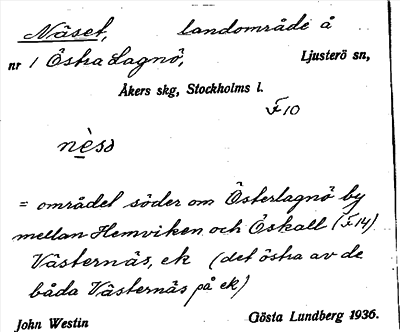 Näset, landområde å
nr 1 Östra Lagnö, Ljusterö sn,
Åkers skg, Stockholms l.
F 10
nè̱ss
= området söder om Österlagnö by
mellan Hemviken och Öskall (F 14)
Västernäs, ek (det östra av de
båda Västernäs på ek)
John Westin Gösta Lundberg 1936.